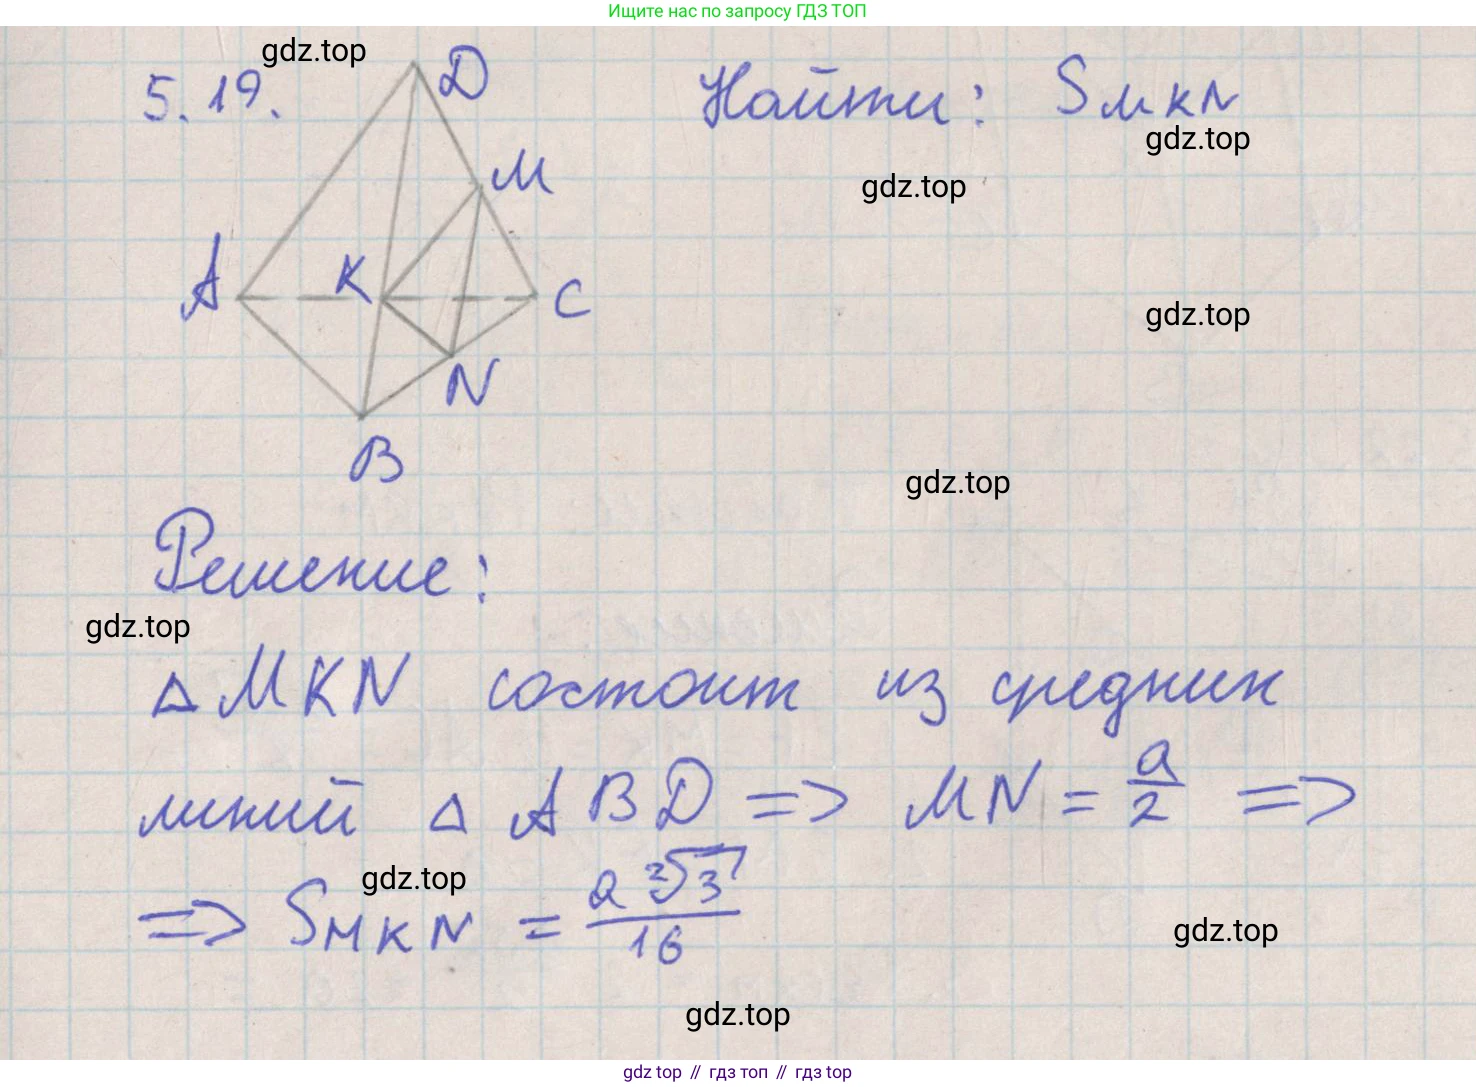 Ищите нас по запросу ГДЗ ТОП
gdz.top
5.19.
D
Найти: S MKN
gdz.top
M
gdz.top
A
K
C
gdz.top
N
B
gdz.top
Решение:
gdz.top
△ MKN состоит из средних
линий △ ABD => MN = a/2 =>
gdz.top
=> S MKN = a²√3/16
gdz.top
gdz.top
gdz.top // гдз топ // гдз top